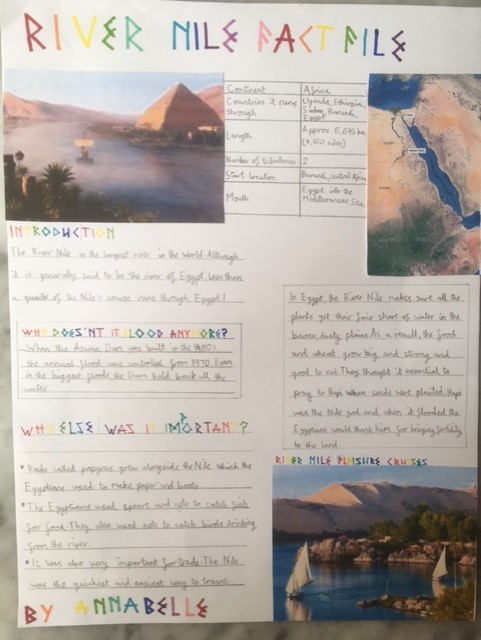 RIVER NILE FACT FILE
Continent Africa
Countries it runs through Uganda, Ethiopia, Sudan, Burundi, Egypt
Length Approx. 6,695 km (4,160 miles)
Number of tributaries 2
Start location Burundi, central Africa
Mouth Egypt into the Mediterranean Sea
INTRODUCTION
The River Nile is the longest river in the World. Although
it is generally said to be the river of Egypt, less than
a quarter of the Nile's course runs through Egypt!
WHY DOES'NT IT FLOOD ANYMORE?
When the Aswan Dam was built in the 1960s
the annual flood was controlled from 1970. Even
in the biggest floods the Dam hold back all the
water.
In Egypt, the River Nile makes sure all the
plants get their fair share of water in the
barren, dusty plains. As a result, the food
and wheat grow big and strong and
good to eat. They thought it essential to
pray to Hapi when seeds were planted. Hapi
was the Nile god and when it flooded the
Egyptians would thank him for bringing fertility
to the land.
WHY ELSE WAS IT IMPORTANT?
• Reeds called papyrus grew alongside the Nile which the
Egyptians used to make paper and boats.
• The Egyptians used spears and nets to catch fish
for food. They also used nets to catch birds drinking
from the river.
• It was also very important for trade. The Nile
was the quickest and easiest way to travel
RIVER NILE PLEISURE CRUISES
BY ANNABELLE